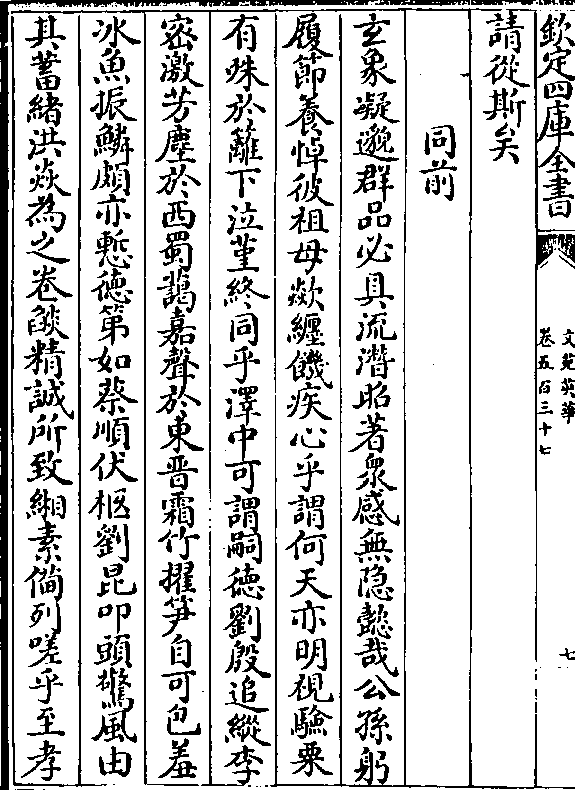 欽定四庫全書
文苑英華
卷五百三十七
七
請從斯矣
同前
玄象凝邈群品必具流潛昭著衆感無隠懿哉公孫躬
履節養悼彼祖母歘纏饑疾心乎謂何天亦明視驗粟
有殊於籬下泣堇終同乎澤中可謂嗣徳劉殷追縱李
密激芳塵於西蜀藹嘉聲於東晋霜竹擢笋自可包羞
冰魚振鱗頗亦慙徳第如蔡順伏柩劉昆叩頭驚風由
其蓄緒洪焱為之卷燄精誠所致緗素備列嗟乎至孝